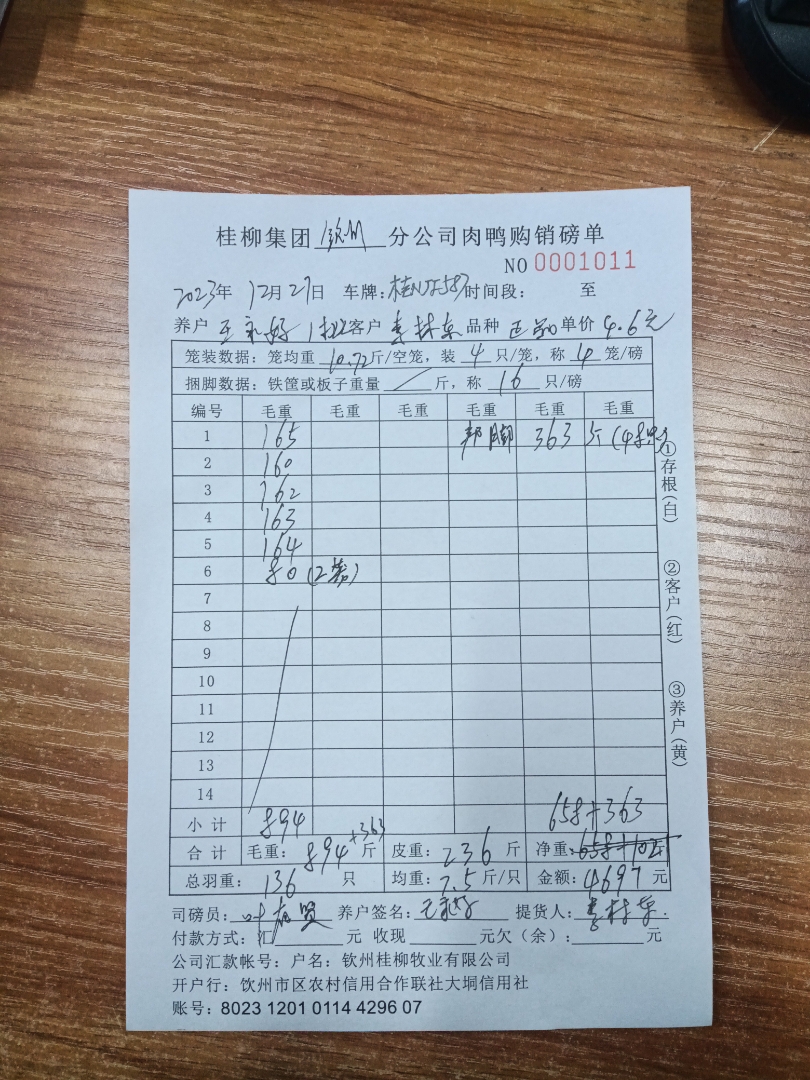 桂柳集团 钦州 分公司肉鸭购销磅单
NO 0001011
2023年 12月27日 车牌: 时间段: 至
养户 客户 李林东 品种 单价 4.6元
笼装数据:笼均重 10.72斤/空笼,装 4 只/笼,称 4 笼/磅
捆脚数据:铁筐或板子重量 / 斤,称 16 只/磅
编号 毛重 毛重 毛重 毛重 毛重 毛重
1 165 363 斤
2 160
3 162
4 163
5 164
6 80 (2笼)
7
8
9
10
11
12
13
14
小计 894 658+363
合计 毛重: 894+363 斤 皮重: 236 斤 净重: 元
总羽重: 136 只 均重: 7.5 斤/只 金额: 4697 元
司磅员: 养户签名: 提货人: 李林东
付款方式:汇 元 收现 元欠(余): 元
公司汇款帐号:户名:钦州桂柳牧业有限公司
开户行:钦州市区农村信用合作联社大垌信用社
账号:8023 1201 0114 4296 07
①存根(白)
②客户(红)
③养户(黄)